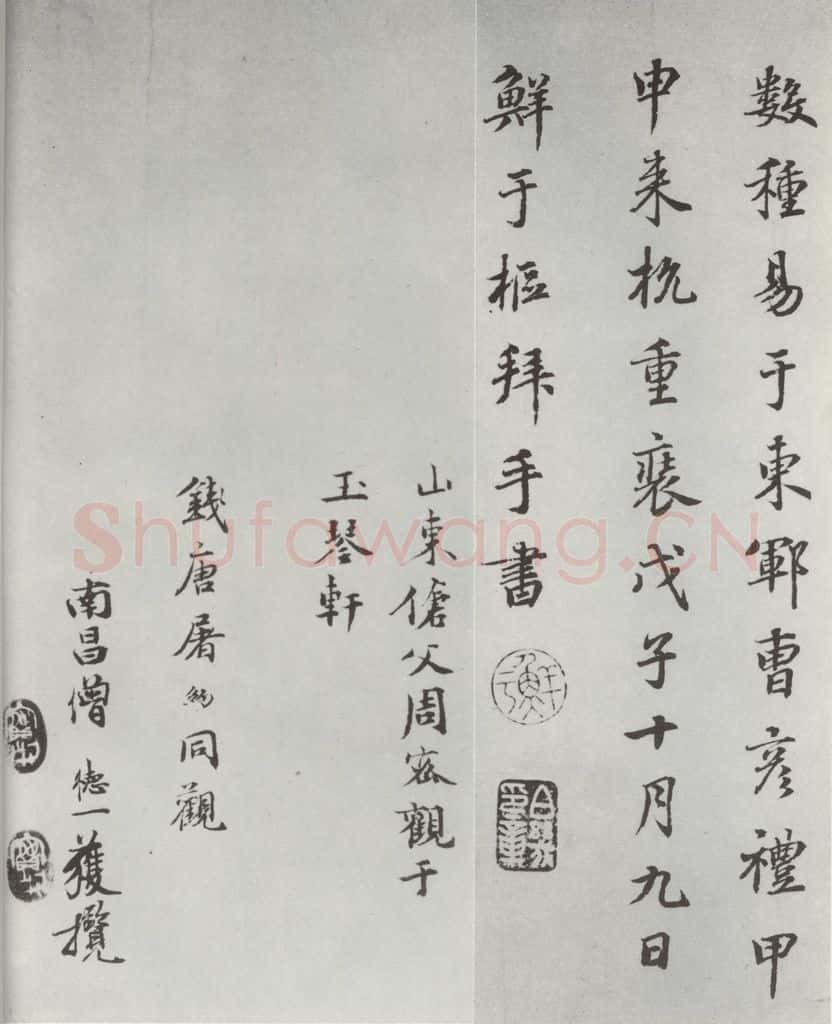 数種易于東鄆曹彦禮甲
申来杭重裝戊子十月九日
鮮于樞拜手書
山東傖父周密觀于
玉琴軒
錢唐屠約同觀
南昌僧德一獲攬
Shufawang.CN